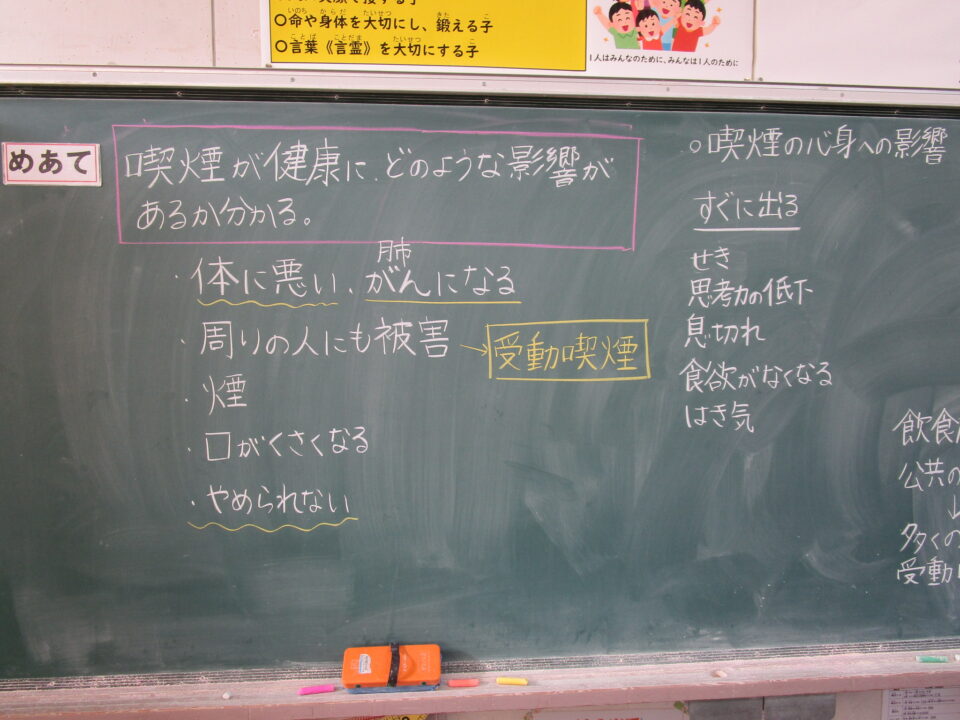 ○命や身体を大切にし、鍛える子
○言葉《言霊》を大切にする子
1人はみんなのために、みんなは1人のために
めあて
喫煙が健康に、どのような影響が
あるか分かる。
・体に悪い、肺がんになる
・周りの人にも被害→受動喫煙
・煙
・口がくさくなる
・やめられない
○喫煙の心身への影響
すぐに出る
せき
思考力の低下
息切れ
食欲がなくなる
はき気
飲食
公共の
↓
多くの
受動